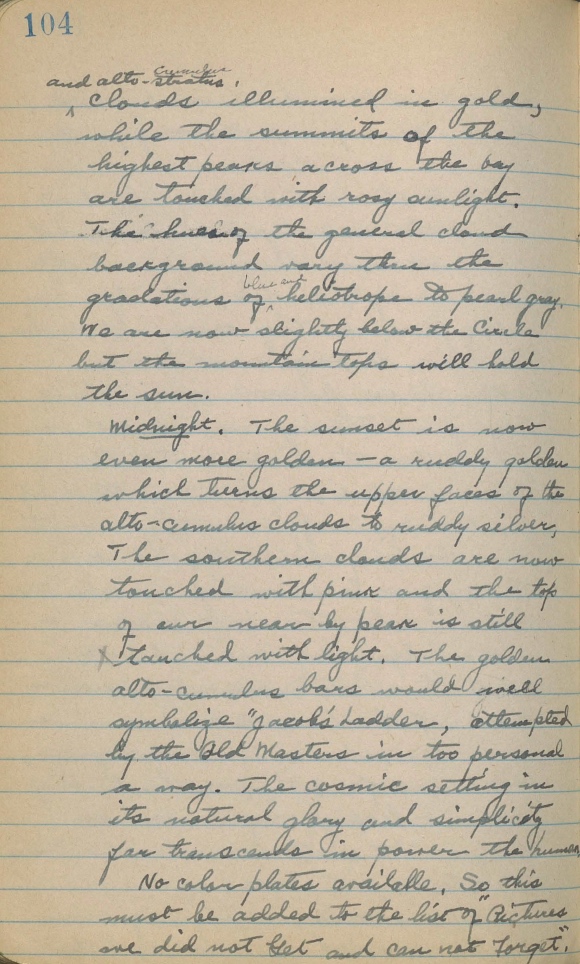 104
Cumulus
and alto-stratus,
^ Clouds illumined in gold,
while the summits of the
highest peaks across the bay
are touched with rosy sunlight.
The hues of the general cloud
background vary thru the
blue and
gradations of ^ heliotrope to pearl gray.
We are now slightly below the Circle
but the mountain tops will hold
the sun.
Midnight. The sunset is now
even more golden — a ruddy golden
which turns the upper faces of the
alto-cumulus clouds to ruddy silver,
The southern clouds are now
touched with pink and the top
of our near by peak is still
x touched with light. The golden
alto-cumulus bars would well
symbolize "Jacob's Ladder, attempted
by the Old Masters in too personal
a way. The cosmic setting in
its natural glory and simplicity
far transcends in power the human
No color plates available. So this
must be added to the list of "Pictures
we did not Get and can not Forget".